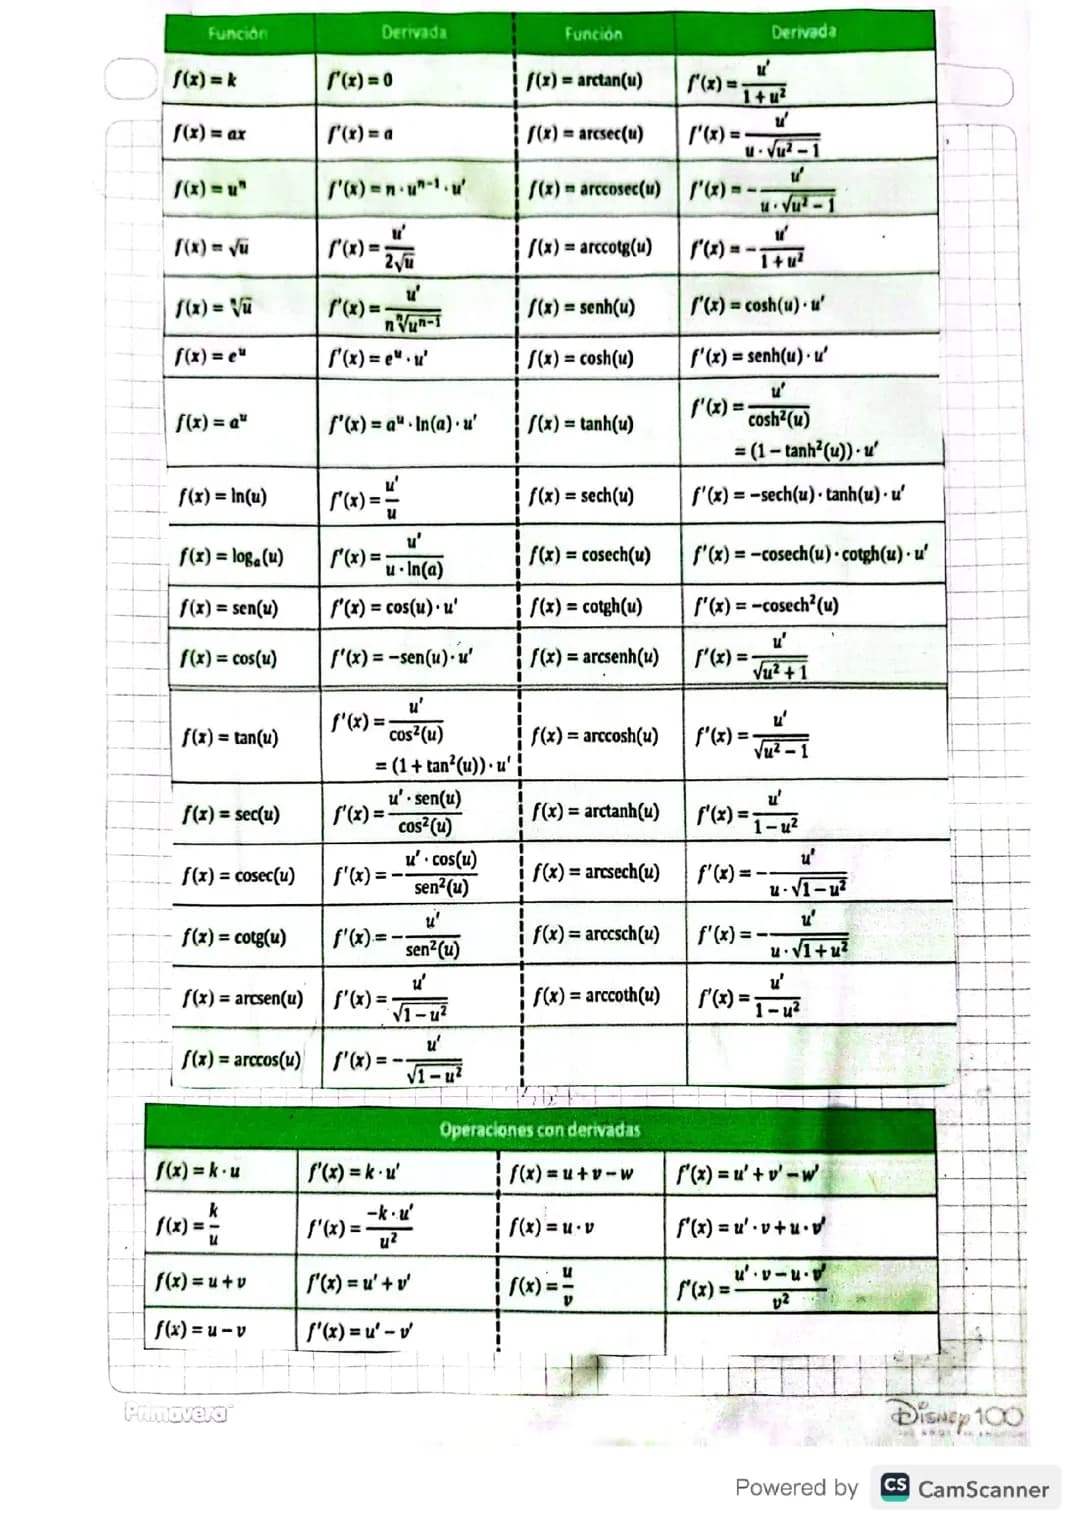 Función Derivada Función Derivada
f(x) = k f'(x) = 0 f(x) = arctan(u) f'(x) = u' / (1 + u²)
f(x) = ax f'(x) = a f(x) = arcsec(u) f'(x) = u' / (u · √(u² − 1))
f(x) = uⁿ f'(x) = n · uⁿ⁻¹ · u' f(x) = arccosec(u) f'(x) = − u' / (u · √(u² − 1))
f(x) = √u f'(x) = u' / (2√u) f(x) = arccotg(u) f'(x) = − u' / (1 + u²)
f(x) = ⁿ√u f'(x) = u' / (n ⁿ√(uⁿ⁻¹)) f(x) = senh(u) f'(x) = cosh(u) · u'
f(x) = eᵘ f'(x) = eᵘ · u' f(x) = cosh(u) f'(x) = senh(u) · u'
f(x) = aᵘ f'(x) = aᵘ · ln(a) · u' f(x) = tanh(u) f'(x) = u' / cosh²(u)
= (1 − tanh²(u)) · u'
f(x) = ln(u) f'(x) = u' / u f(x) = sech(u) f'(x) = −sech(u) · tanh(u) · u'
f(x) = logₐ(u) f'(x) = u' / (u · ln(a)) f(x) = cosech(u) f'(x) = −cosech(u) · cotgh(u) · u'
f(x) = sen(u) f'(x) = cos(u) · u' f(x) = cotgh(u) f'(x) = −cosech²(u)
f(x) = cos(u) f'(x) = −sen(u) · u' f(x) = arcsenh(u) f'(x) = u' / √(u² + 1)
f(x) = tan(u) f'(x) = u' / cos²(u) f(x) = arccosh(u) f'(x) = u' / √(u² − 1)
= (1 + tan²(u)) · u'
f(x) = sec(u) f'(x) = u' · sen(u) / cos²(u) f(x) = arctanh(u) f'(x) = u' / (1 − u²)
f(x) = cosec(u) f'(x) = − u' · cos(u) / sen²(u) f(x) = arcsech(u) f'(x) = − u' / (u · √(1 − u²))
f(x) = cotg(u) f'(x) = − u' / sen²(u) f(x) = arccsch(u) f'(x) = − u' / (u · √(1 + u²))
f(x) = arcsen(u) f'(x) = u' / √(1 − u²) f(x) = arccoth(u) f'(x) = u' / (1 − u²)
f(x) = arccos(u) f'(x) = − u' / √(1 − u²)
Operaciones con derivadas
f(x) = k · u f'(x) = k · u' f(x) = u + v − w f'(x) = u' + v' − w'
f(x) = k / u f'(x) = −k · u' / u² f(x) = u · v f'(x) = u' · v + u · v'
f(x) = u + v f'(x) = u' + v' f(x) = u / v f'(x) = (u' · v − u · v') / v²
f(x) = u − v f'(x) = u' − v'
Primavera
Disney 100
Powered by CS CamScanner